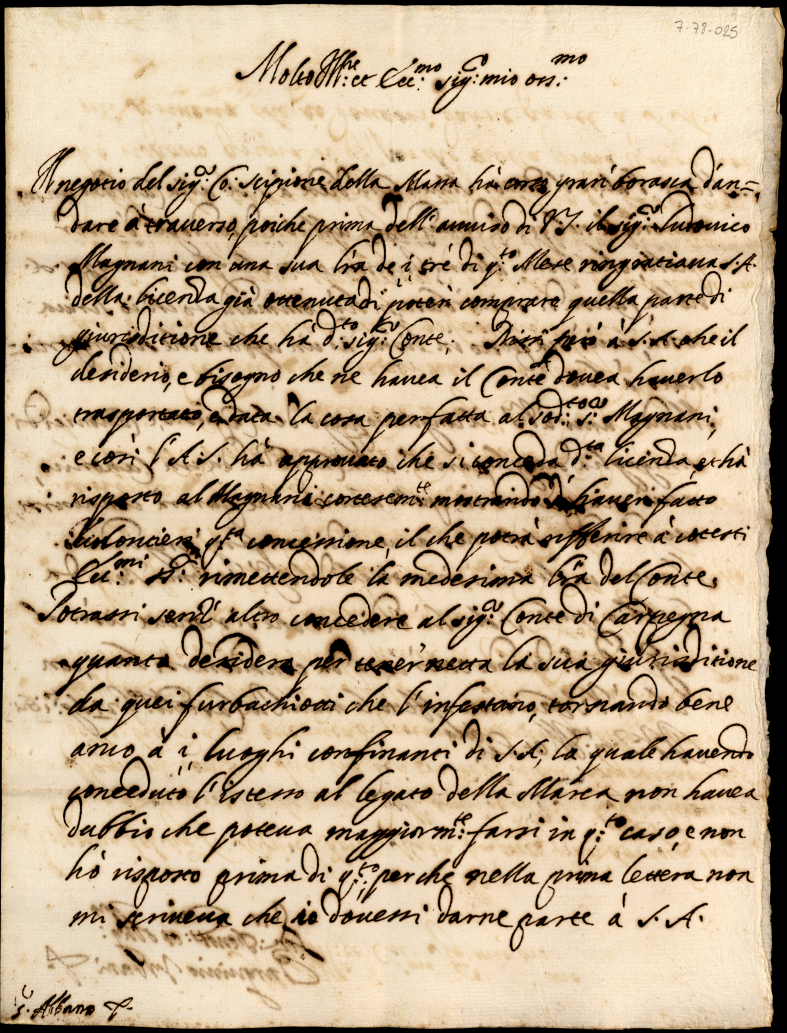 7-78-025
Molto Ill.re et Ecc.mo sig.r mio oss.mo
Il negotio del sig.r Co: scipione della Massa hà corso gran borasca d'an=
dare à traverso, poiche prima dell'avviso di VS. il sig.r Ludovico
Magnani con una sua l'ra de i tré di q.to Mese ringratiava S.A.
della licenza già ottenuta di poter comprare quella parte di
giurisditione che hà d.to sig.r Conte. Dissi però à S.A. che il
desiderio, e bisogno che ne havea il Conte dovea haverlo
trasportato, e data la cosa per fatta al sod.to s.r Magnani,
e così l'A.S. hà approvato che si conceda d.ta licenza et hà
risposto al Magnani cortesem.te mostrando haver fatto
volontieri q.sta concessione, il che potrà rifferire à cotesti
Ecc.mi SS.ri rimettendole la medesima l'ra del Conte.
Potrassi senz'altro concedere al sig.r Conte di Carpegna
quanto desidera per tener netta la sua giurisditione
da quei furbachiotti che l'infestano, tornando bene
anco à i luoghi confinanti di S.A., la quale havendo
conceduto l'istesso al legato della Marca non havea
dubbio che poteva maggiorm.te farsi in q.to caso, e non
hò risposto prima di q.to, perche nella prima lettera non
mi scriveva che io dovessi darne parte à S.A.
s.r Albano